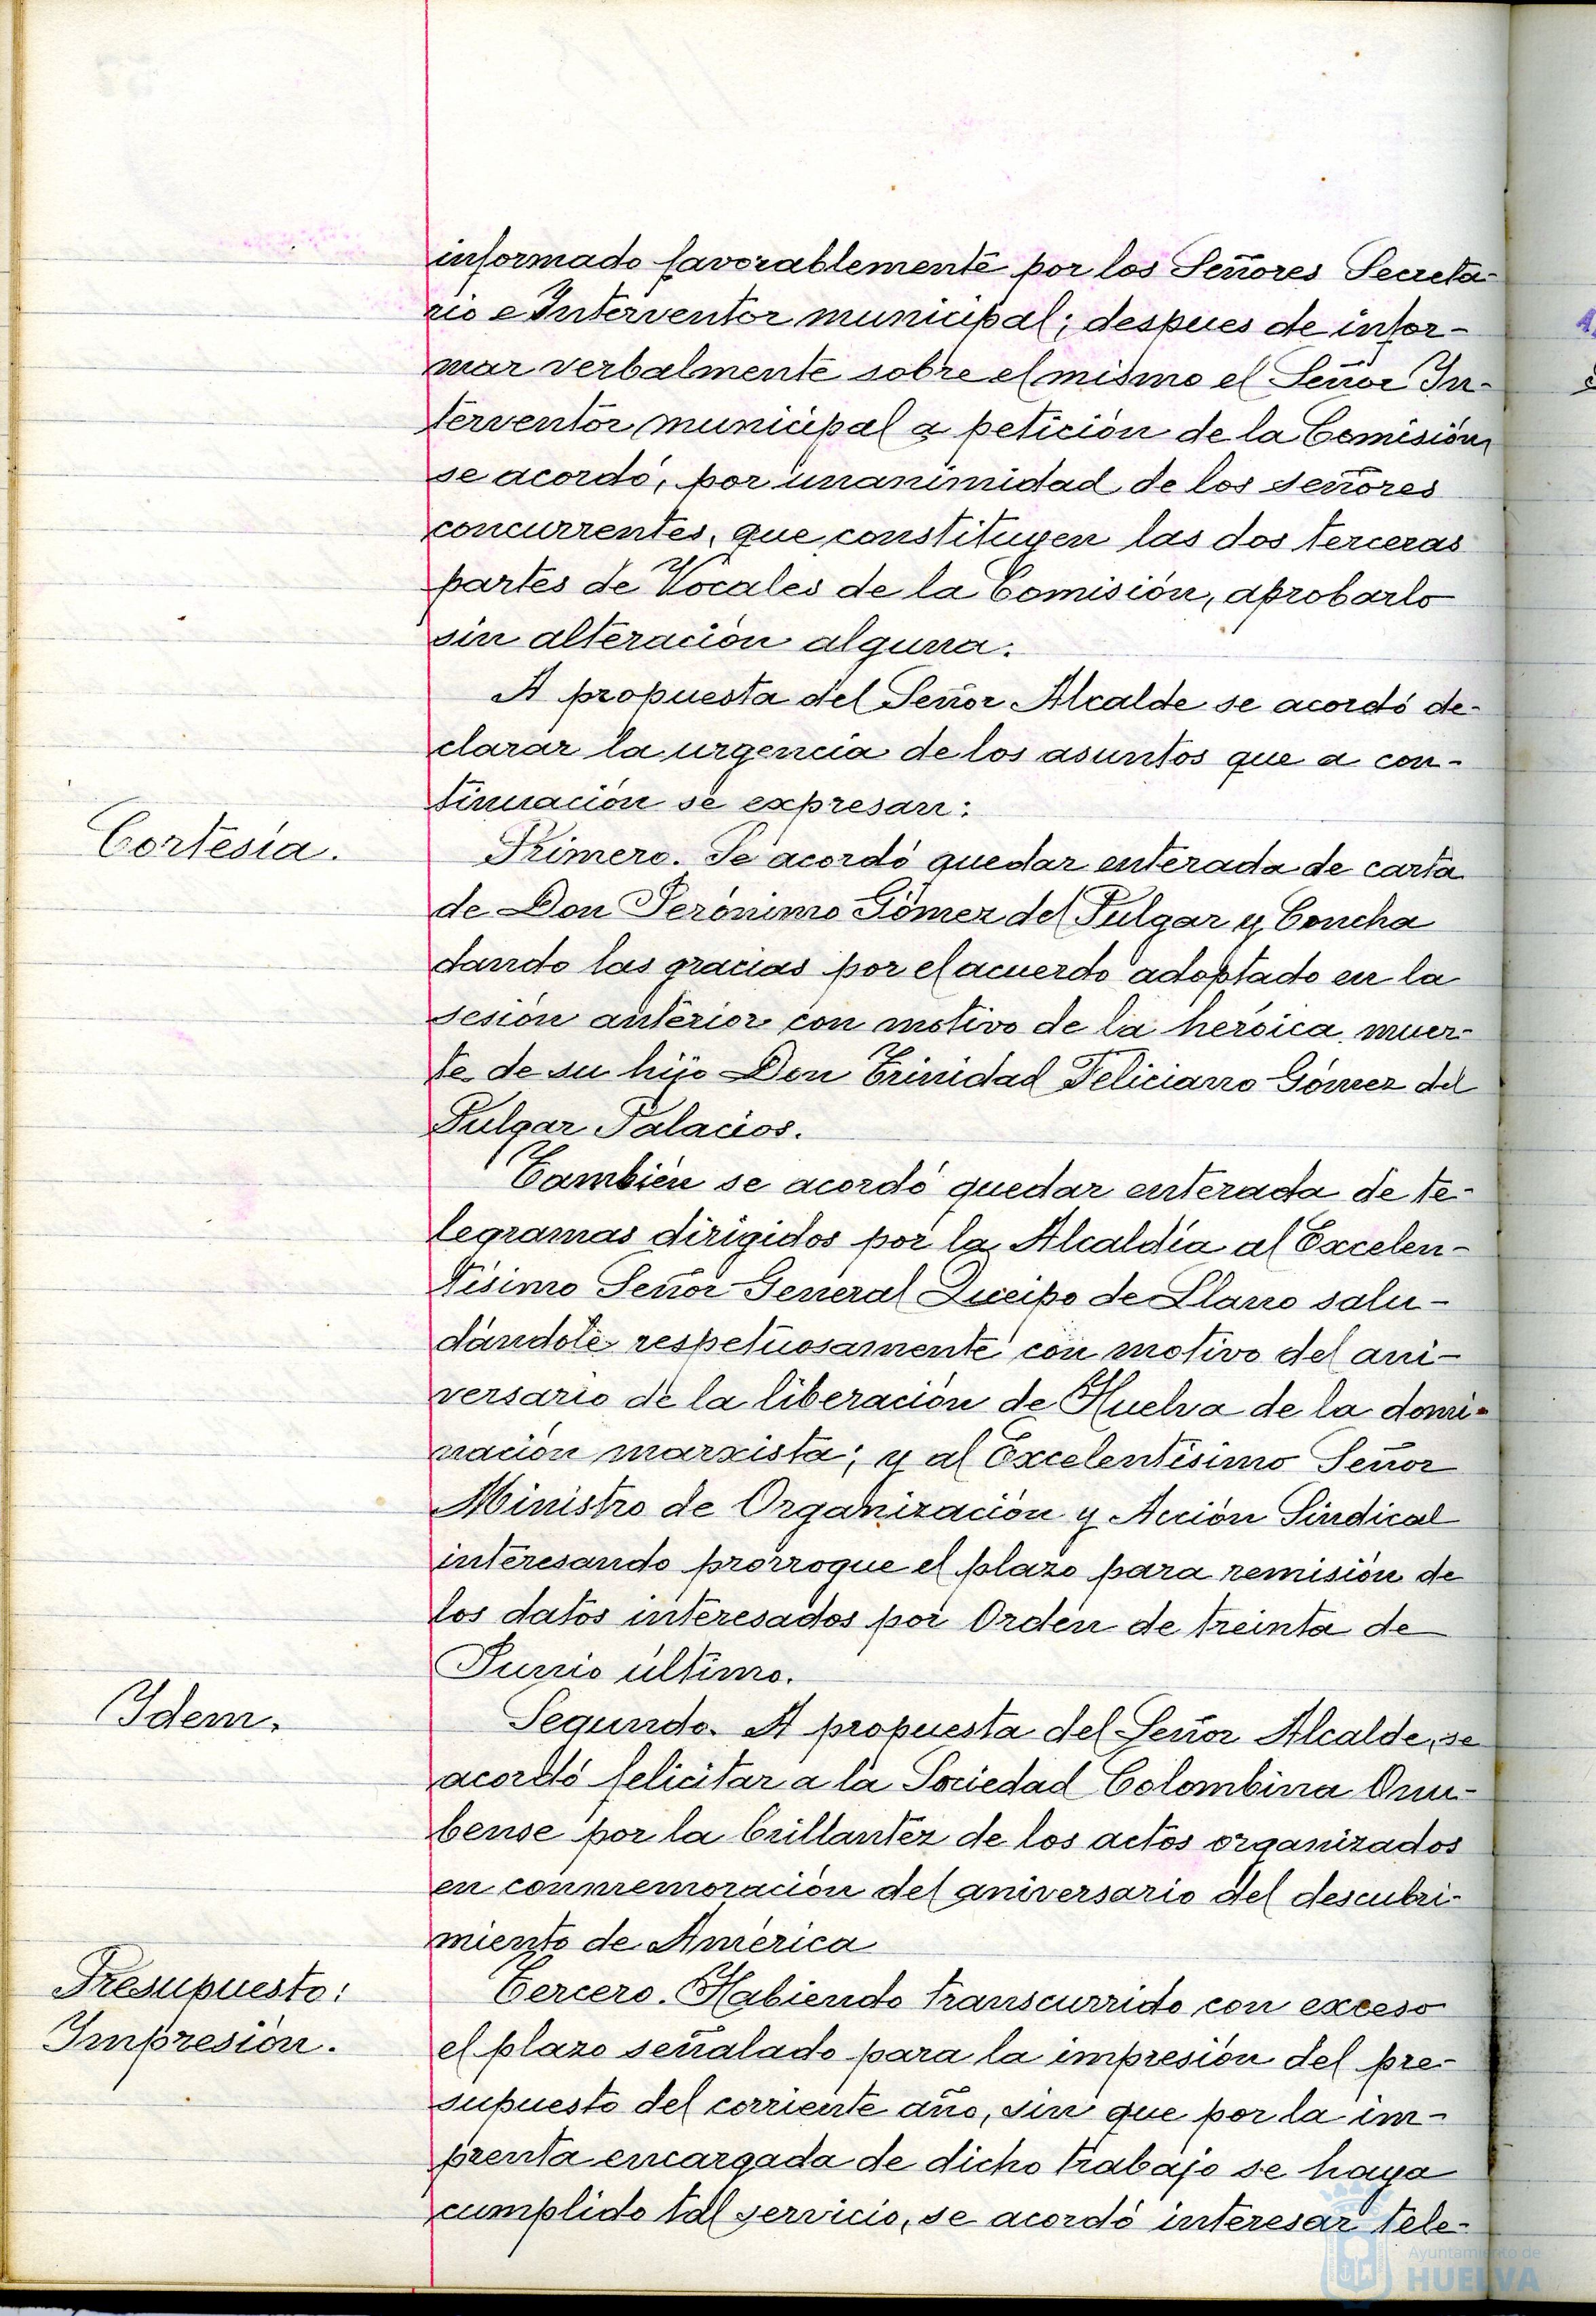 informado favorablemente por los Señores Secreta-
rio e Interventor municipal; despues de infor-
mar verbalmente sobre el mismo el Señor In-
terventor municipal a petición de la Comisión
se acordó, por unanimidad de los señores
concurrentes, que constituyen las dos terceras
partes de Vocales de la Comisión, aprobarlo
sin alteración alguna.
A propuesta del Señor Alcalde se acordó de-
clarar la urgencia de los asuntos que a con-
tinuación se expresan:
Cortesía.
Primero. Se acordó quedar enterada de carta
de Don Jerónimo Gómez del Pulgar y Concha
dando las gracias por el acuerdo adoptado en la
sesión anterior con motivo de la heróica muer-
te de su hijo Don Trinidad Feliciano Gómez del
Pulgar Palacios.
También se acordó quedar enterada de te-
legramas dirigidos por la Alcaldía al Excelen-
tísimo Señor General Queipo de Llano salu-
dándole respetuosamente con motivo del ani-
versario de la liberación de Huelva de la domi-
nación marxista; y al Excelentísimo Señor
Ministro de Organización y Acción Sindical
interesando prorrogue el plazo para remisión de
los datos interesados por Orden de treinta de
Junio último.
Idem.
Segundo. A propuesta del Señor Alcalde, se
acordó felicitar a la Sociedad Colombina Onu-
bense por la brillantez de los actos organizados
en conmemoración del aniversario del descubri-
miento de América
Presupuesto:
Impresión.
Tercero. Habiendo transcurrido con exceso
el plazo señalado para la impresión del pre-
supuesto del corriente año, sin que por la im-
prenta encargada de dicho trabajo se haya
cumplido tal servicio, se acordó interesar tele-
Ayuntamiento de
HUELVA